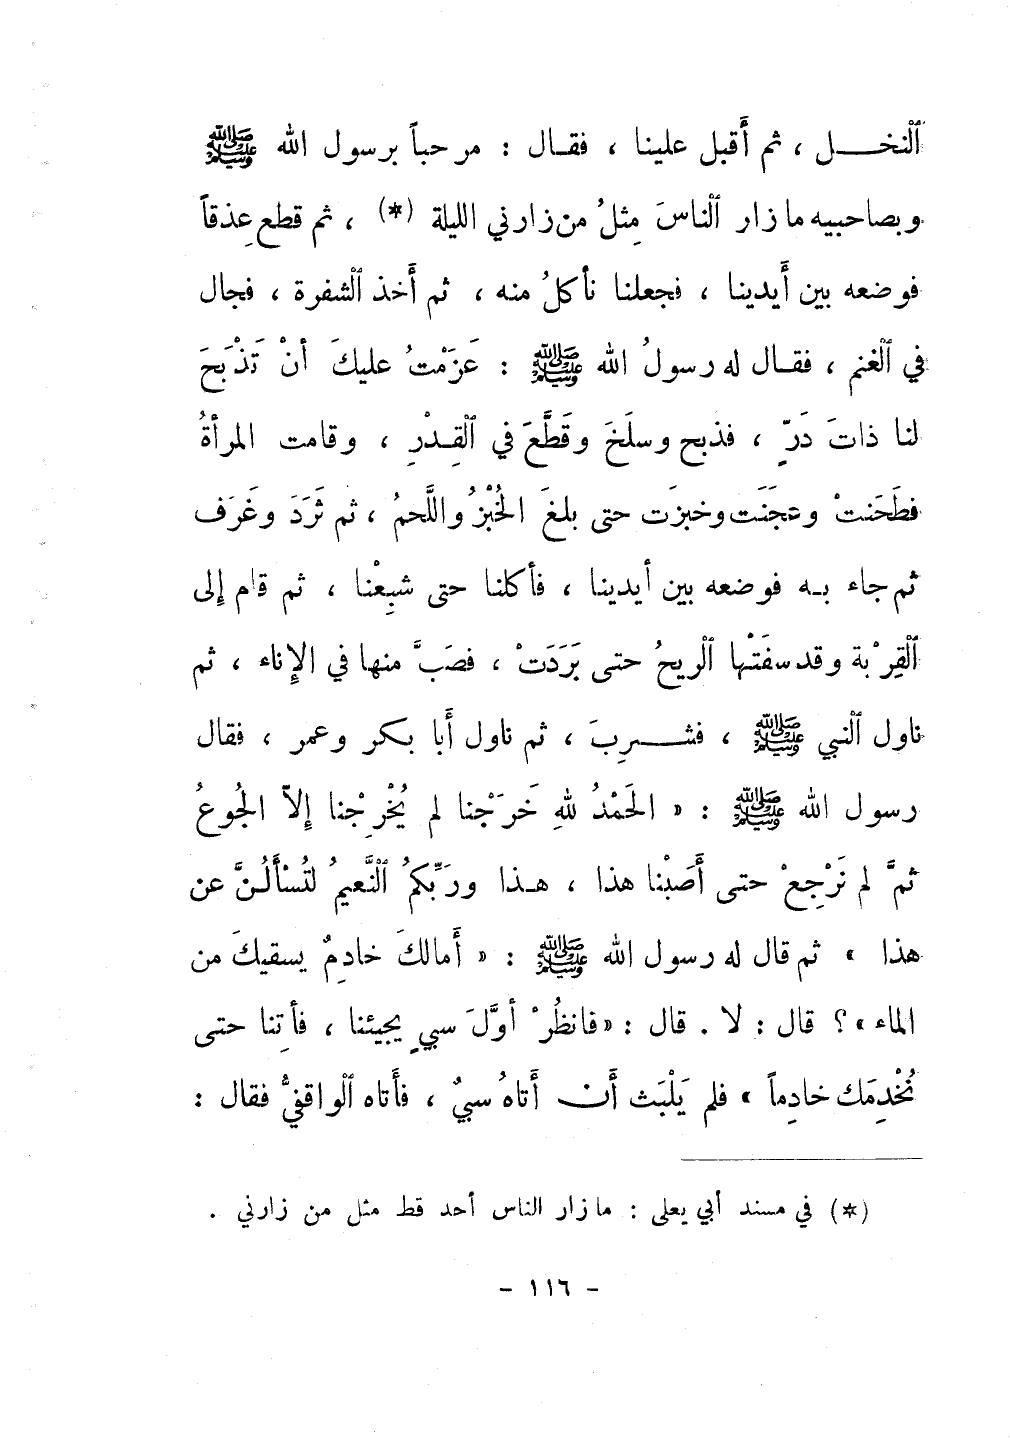 ٱلنخـــل ، ثم أَقبل علينا ، فقـال : مرحباً برسول الله ﷺ
وبصاحبيه ما زار ٱلناسَ مِثلُ من زارني الليلة (*) ، ثم قطع عِذقاً
فوضعه بين أَيدينا ، فجعلنا نأكلُ منه ، ثم أَخذ ٱلشفرة ، فجال
في ٱلغنم ، فقـال له رسولُ الله ﷺ : عَزَمْتُ عليكَ أنْ تَذْبَحَ
لنا ذاتَ دَرٍّ ، فذبح وسلَخَ وقَطَّعَ في ٱلقِـدْرِ ، وقامت المرأةُ
فطَحَنتْ وعجَنَت وخبزَت حتى بلغَ الخُبْزُ واللَّحمُ ، ثم ثَرَدَ وغَرَف
ثم جاء بـه فوضعه بين أيدينا ، فأكلنا حتى شبِعْنا ، ثم قام إلى
ٱلقِرْبة وقد سفَتْها ٱلريحُ حتى بَرَدَتْ ، فصَبَّ منها في الإِناء ، ثم
ناول ٱلنبي ﷺ ، فشـــرِبَ ، ثم ناول أَبا بكر وعمر ، فقال
رسول الله ﷺ : « الحَمْدُ للهِ خَرَجْنا لم يُخْرِجْنا إلاَّ الجُوعُ
ثمَّ لم نَرْجِعْ حتى أَصَبْنا هذا ، هـذا ورَبِّكمُ ٱلنَّعيمُ لتُسْأَلُـنَّ عن
هذا » ثم قال له رسول الله ﷺ : « أَمالكَ خادِمٌ يسقيكَ من
الماء »؟ قال : لا . قال : « فانظُرْ أوَّلَ سبيٍ يجيئنا ، فأتِنا حتى
نُخْدِمَك خادِماً » فلم يَلْبَث أَن أَتاهُ سبيٌ ، فأَتاه ٱلواقفيُّ فقال :
(*) في مسند أبي يعلى : ما زار الناس أحد قط مثل من زارني .
- ١١٦ -